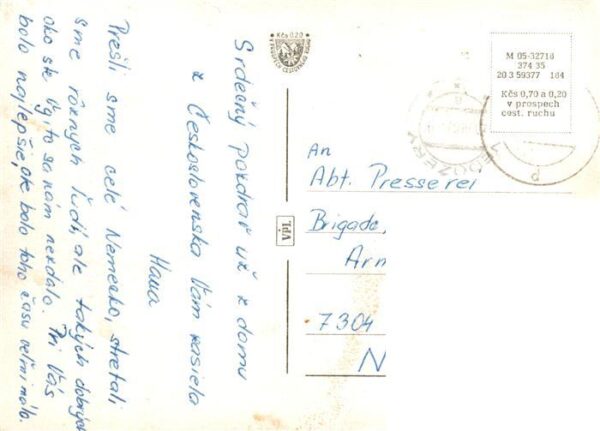 Srdečný pozdrav už z domu
z Československa Vám zasiela
Hana
Prešli sme celé Nemecko, stretali
sme rôznych ľudí, ale takých dobrých
ako ste Vy, to sa nám nezdalo. Pri Vás
bolo najlepšie, ale bolo toho času veľmi málo.
Kčs 0,20
VPL
M 05-32716
374 35
20 3 59377 184
Kčs 0,70 a 0,20
v prospech
cest. ruchu
An
Abt. Presserei
Brigade,
Arm
7304
N